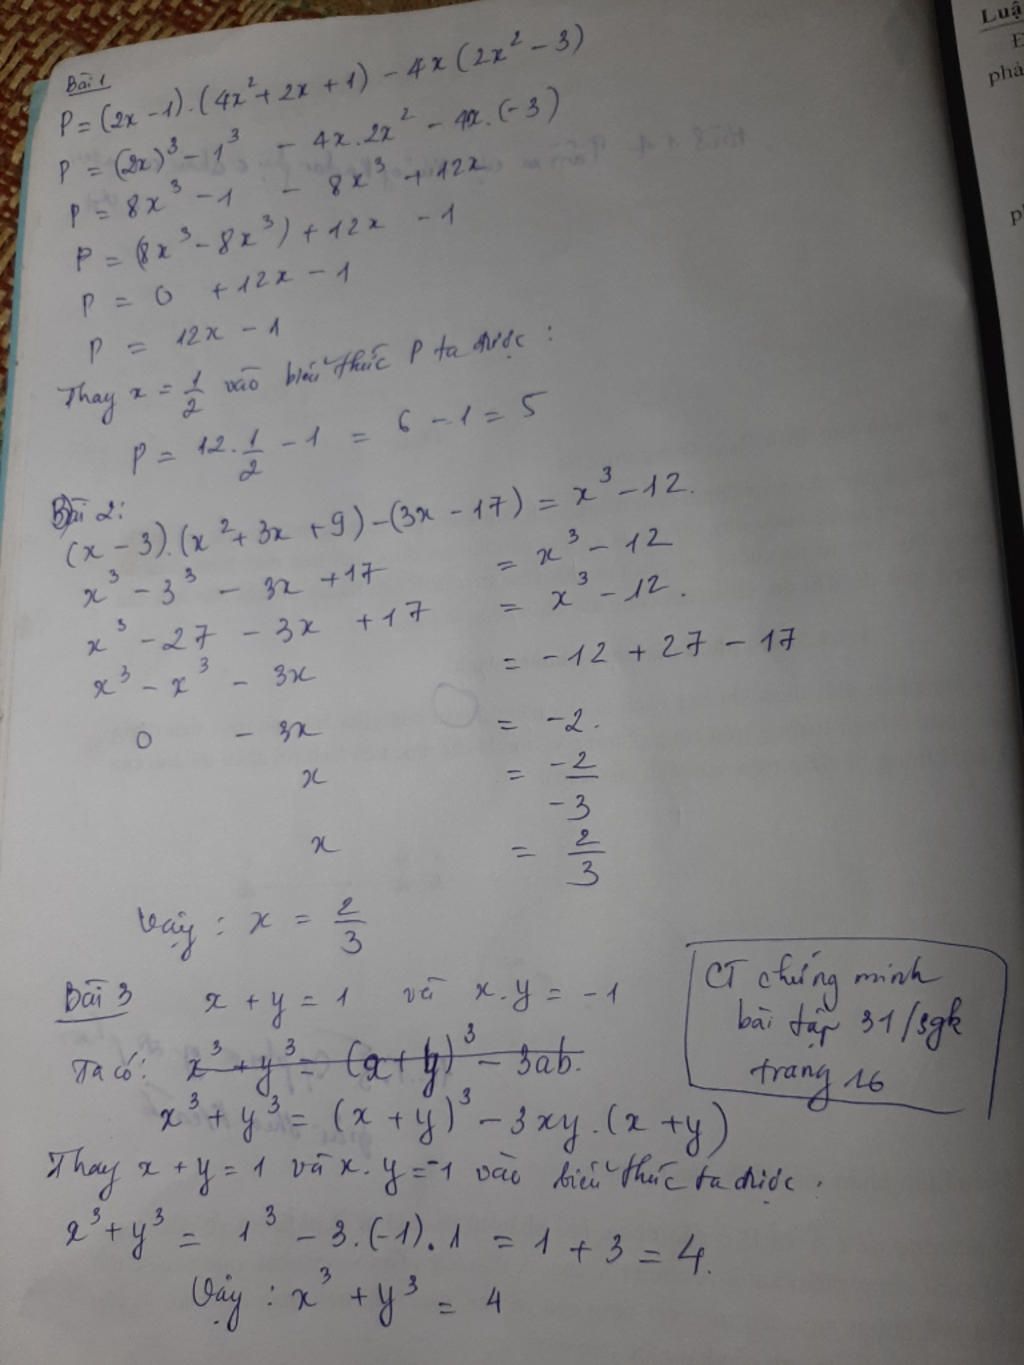 Bài 1
P = (2x - 1).(4x² + 2x + 1) - 4x(2x² - 3)
P = (2x)³ - 1³ - 4x.2x² - 4x.(-3)
P = 8x³ - 1 - 8x³ + 12x
P = (8x³ - 8x³) + 12x - 1
P = 0 + 12x - 1
P = 12x - 1
Thay x = 1/2 vào biểu thức P ta được :
P = 12.1/2 - 1 = 6 - 1 = 5
Bài 2:
(x - 3).(x² + 3x + 9) - (3x - 17) = x³ - 12.
x³ - 3³ - 3x + 17 = x³ - 12
x³ - 27 - 3x + 17 = x³ - 12.
x³ - x³ - 3x = -12 + 27 - 17
0 - 3x = -2.
x = -2/-3
x = 2/3
Vậy : x = 2/3
Bài 3 x + y = 1 và x.y = -1
Ta có: x³ + y³ = (x + y)³ - 3ab.
x³ + y³ = (x + y)³ - 3xy.(x + y)
Thay x + y = 1 và x.y = -1 vào biểu thức ta được.
x³ + y³ = 1³ - 3.(-1).1 = 1 + 3 = 4.
Vậy : x³ + y³ = 4
CT chứng minh
bài tập 31/sgk
trang 16
Luậ
phả